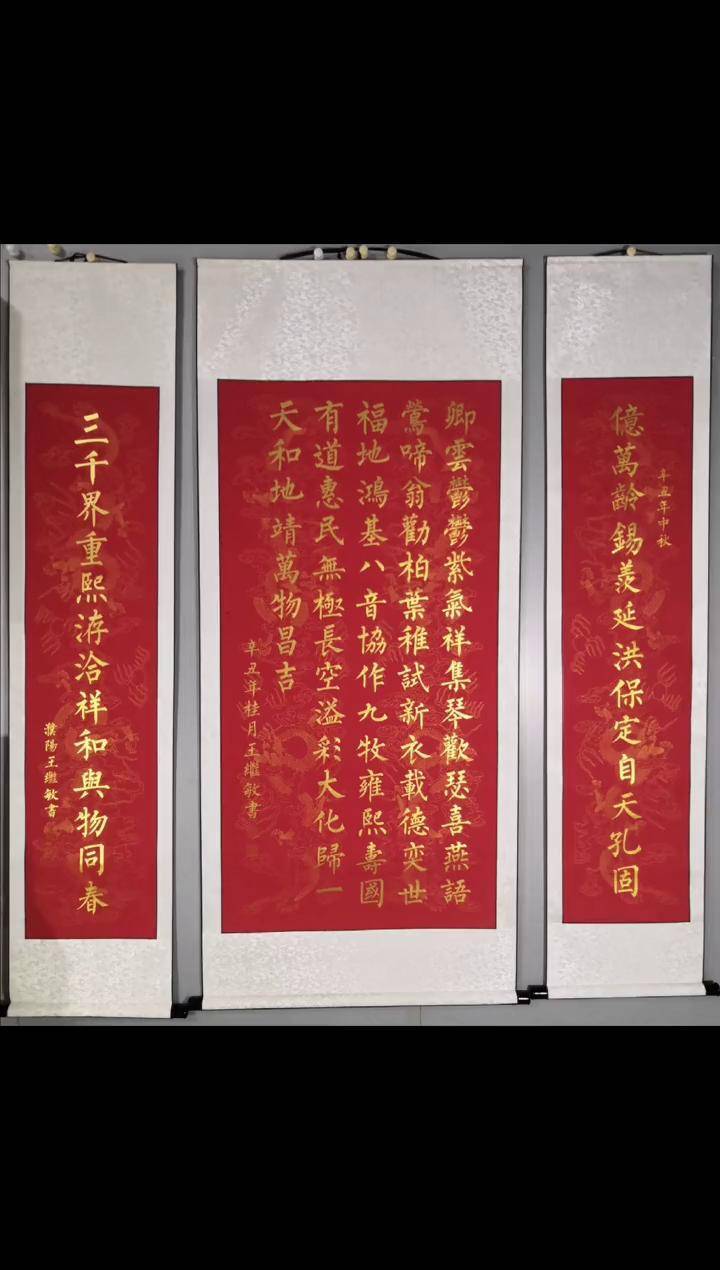 億萬齡錫羨延洪保定自天孔固
辛丑年中秋
卿雲鬱鬱紫氣祥集琴歡瑟喜燕語
鶯啼翁勸柏葉稚試新衣載德奕世
福地鴻基八音協作九牧雍熙壽國
有道惠民無極長空溢彩大化歸一
天和地靖萬物昌吉
辛丑年桂月王繼敏書
三千界重熙洊洽祥和與物同春
濮陽王繼敏書